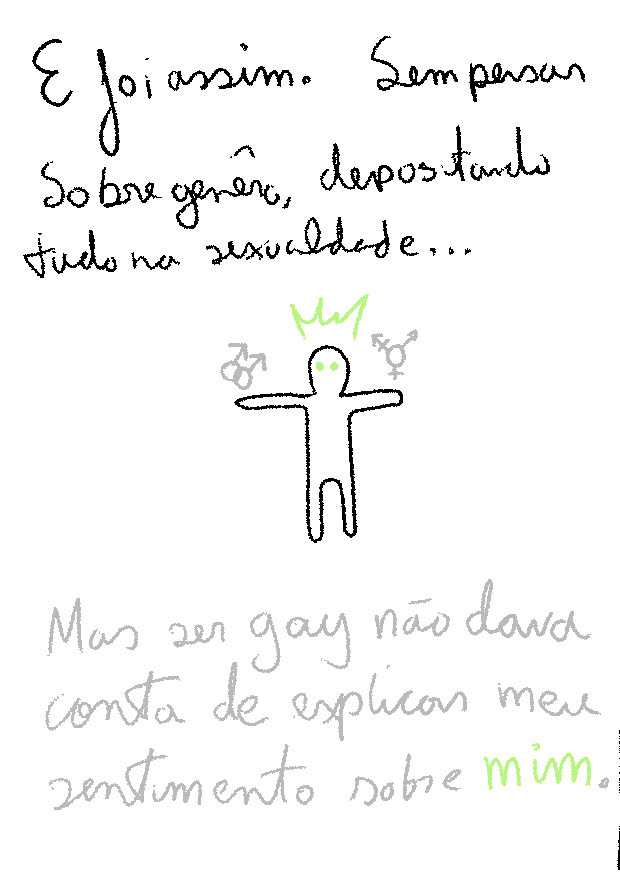 E foi assim. Sem pensar
sobre genêro, depositando
tudo na sexualdade...
Mas ser gay não dava
conta de explicar meu
sentimento sobre mim.